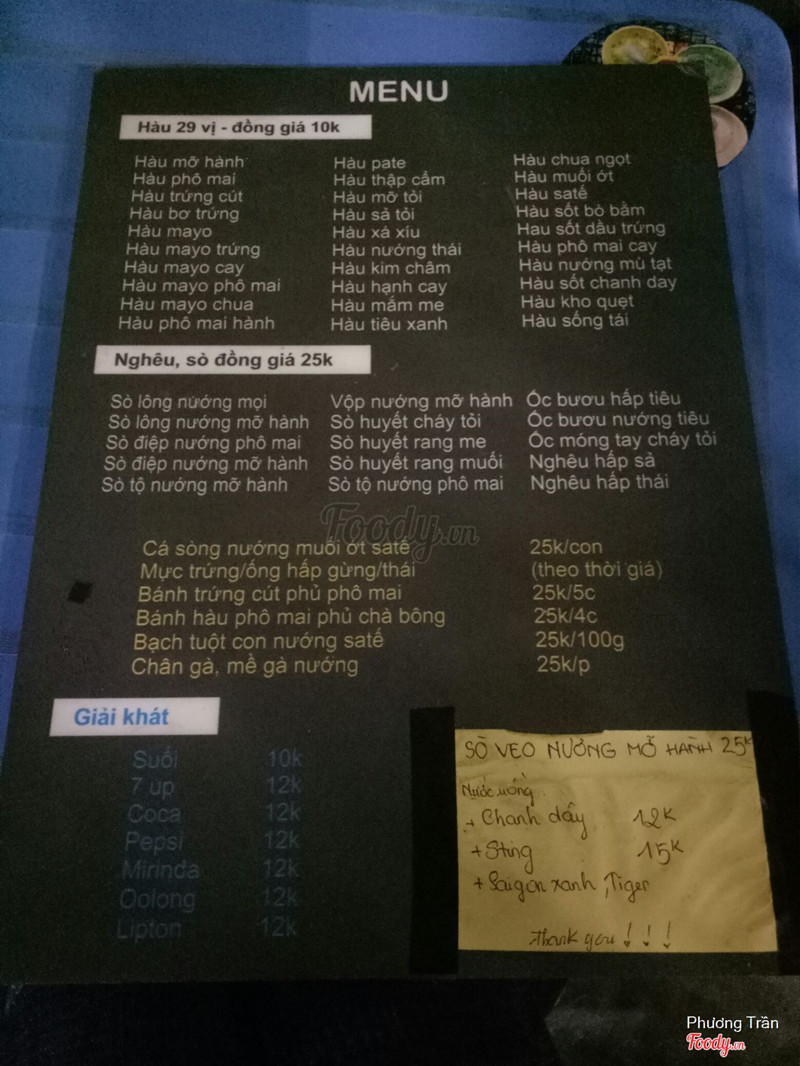 MENU
Hàu 29 vị - đồng giá 10k
Hàu mỡ hành
Hàu phô mai
Hàu trứng cút
Hàu bơ trứng
Hàu mayo
Hàu mayo trứng
Hàu mayo cay
Hàu mayo phô mai
Hàu mayo chua
Hàu phô mai hành
Hàu pate
Hàu thập cẩm
Hàu mỡ tỏi
Hàu sả tỏi
Hàu xá xíu
Hàu nướng thái
Hàu kim châm
Hàu hạnh cay
Hàu mắm me
Hàu tiêu xanh
Hàu chua ngọt
Hàu muối ớt
Hàu satế
Hàu sốt bò bằm
Hau sốt dầu trứng
Hàu phô mai cay
Hàu nướng mù tạt
Hàu sốt chanh day
Hàu kho quẹt
Hàu sống tái
Nghêu, sò đồng giá 25k
Sò lông nướng mọi
Sò lông nướng mỡ hành
Sò điệp nướng phô mai
Sò điệp nướng mỡ hành
Sò tộ nướng mỡ hành
Vộp nướng mỡ hành
Sò huyết cháy tỏi
Sò huyết rang me
Sò huyết rang muối
Sò tộ nướng phô mai
Óc bươu hấp tiêu
Óc bươu nướng tiêu
Óc móng tay cháy tỏi
Nghêu hấp sả
Nghêu hấp thái
Foody.vn
Cá sòng nướng muối ớt satế 25k/con
Mực trứng/ống hấp gừng/thái (theo thời giá)
Bánh trứng cút phủ phô mai 25k/5c
Bánh hàu phô mai phủ chà bông 25k/4c
Bạch tuột con nướng satế 25k/100g
Chân gà, mề gà nướng 25k/p
Giải khát
Suối 10k
7 up 12k
Coca 12k
Pepsi 12k
Mirinda 12k
Oolong 12k
Lipton 12k
SÒ VEO NƯỚNG MỠ HÀNH 25K
Nước uống
+ Chanh dây 12K
+ Sting 15K
+ Saigon xanh, Tiger
Thank you!!!
Phương Trần
Foody.vn